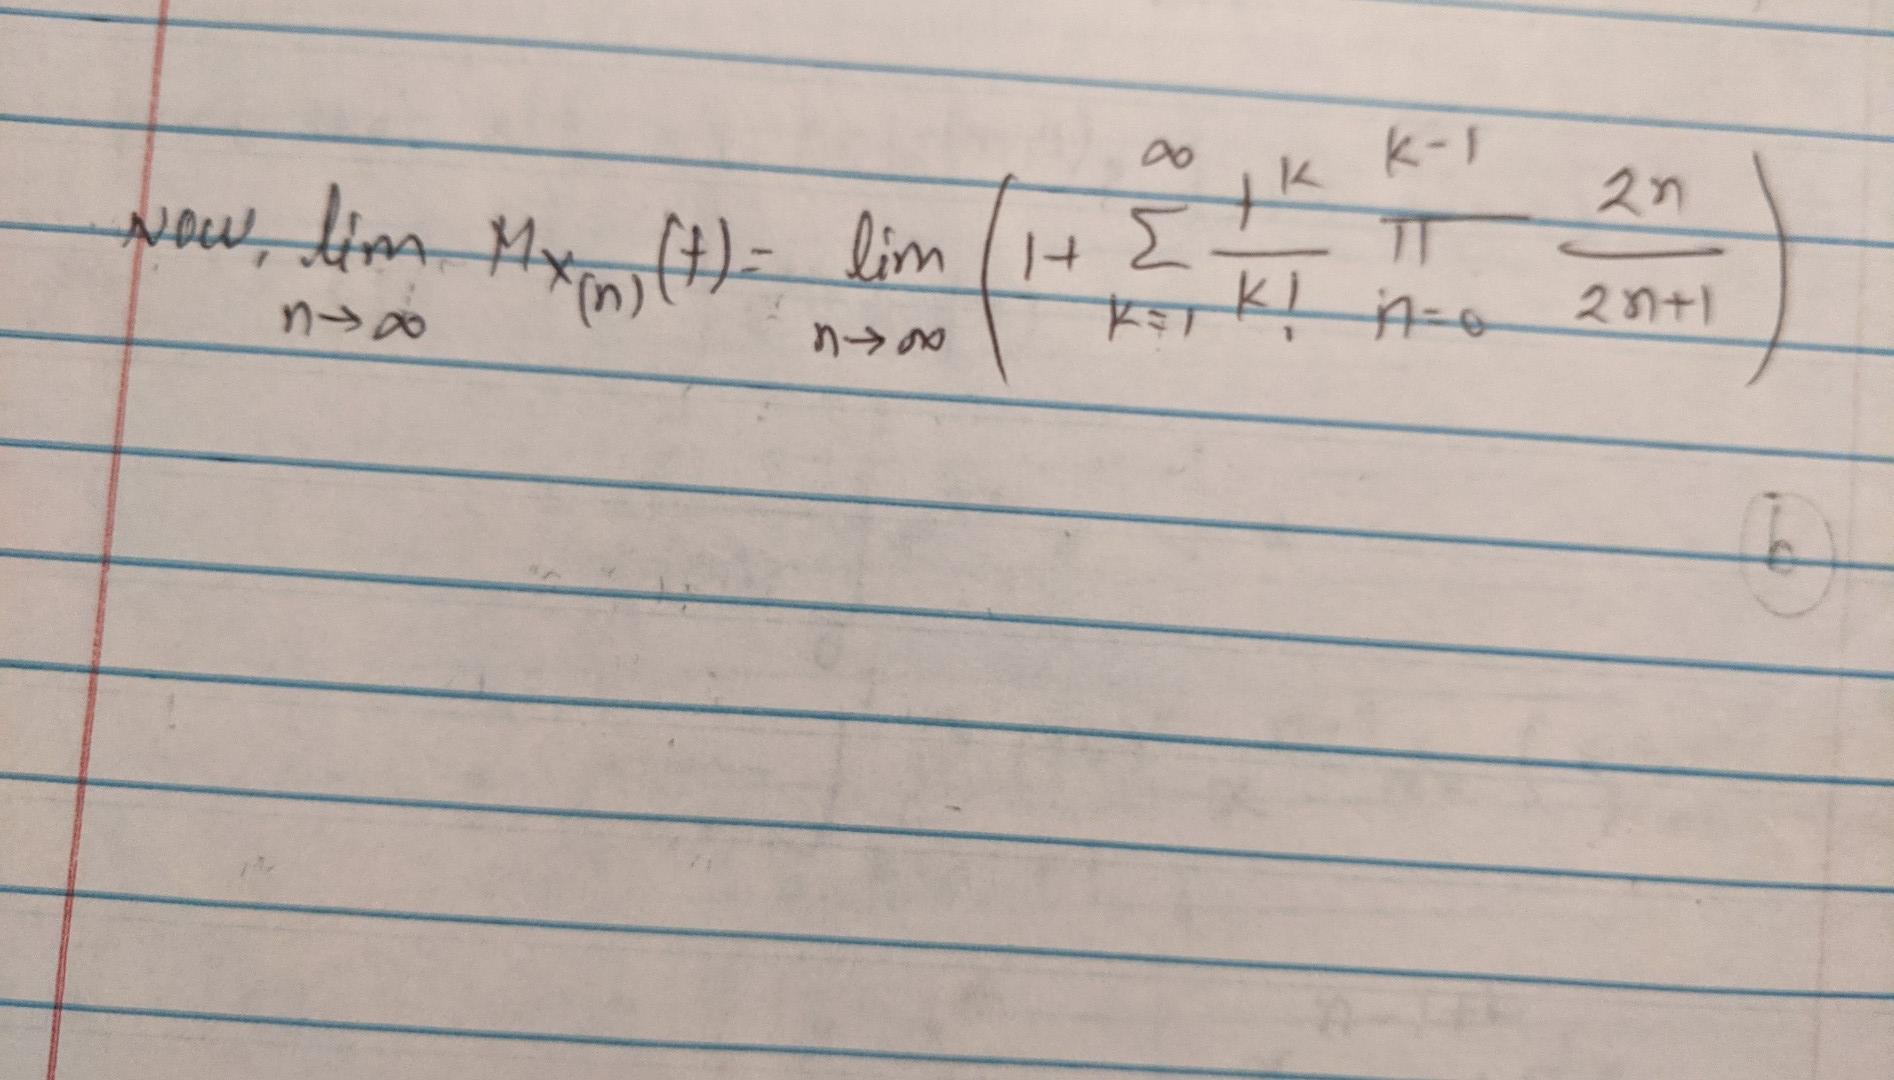 Now, lim n→∞ M_{X_{(n)}}(t) = lim n→∞ ( 1 + ∑_{k=1}^{∞} \frac{t^k}{k!} ∏_{n=0}^{k-1} \frac{2n}{2n+1} )
6